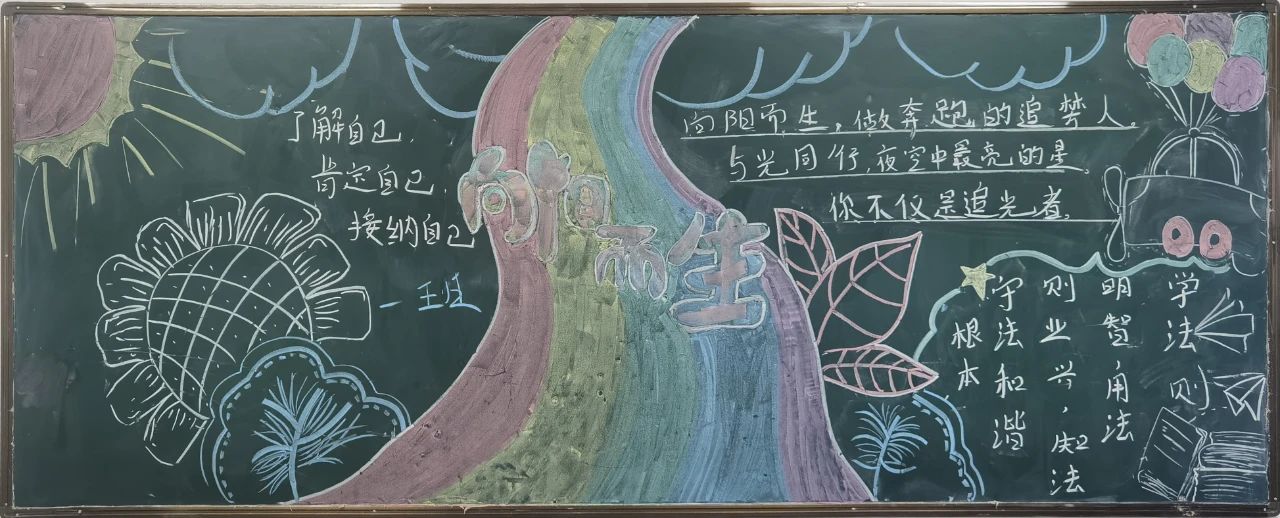 了解自己，
肯定自己，
接纳自己
向阳而生
向阳而生，做奔跑的追梦人。
与光同行，夜空中最亮的星
你不仅是追光者，
学法则
明智用法
则业兴，知法
守法和谐
根本